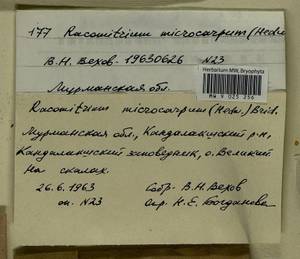 177 Racomitrium microcarpum (Hedw.)
Herbarium MW, Bryophyta
В.Н. Вехов - 19630626 N23
Мурманская обл.
Racomitrium microcarpum (Hedw.) Brid.
Мурманская обл., Кандалакшский р-н,
Кандалакшский заповедник, о. Великий
На скалах.
26.6.1963 Собр. В.Н. Вехов
оп. N23 Опр. Н.Е. Богданова